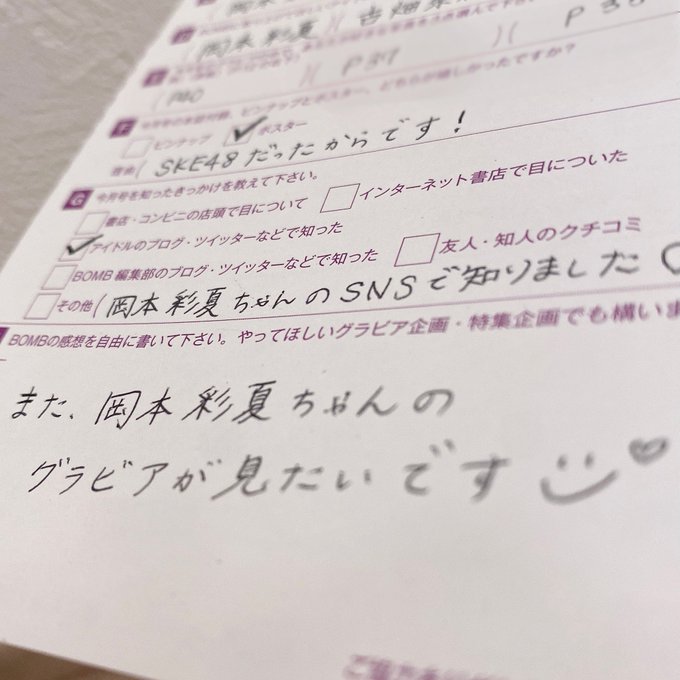 岡本彩夏 )(
P40 )( P39 )( P38
F 今月号の本誌付録、ピンナップとポスター、どちらが嬉しかったですか?
ピンナップ ポスター
理由( SKE48だったからです!
G 今月号を知ったきっかけを教えて下さい。
書店・コンビニの店頭で目について インターネット書店で目についた
アイドルのブログ・ツイッターなどで知った
BOMB編集部のブログ・ツイッターなどで知った 友人・知人のクチコミ
その他( 岡本彩夏ちゃんのSNSで知りました♡
BOMBの感想を自由に書いて下さい。やってほしいグラビア企画・特集企画でも構いま
また、岡本彩夏ちゃんの
グラビアが見たいです